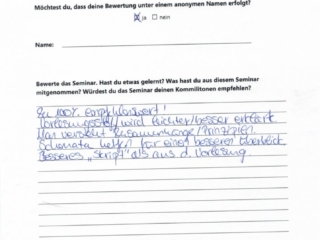 Möchtest du, dass deine Bewertung unter einem anonymen Namen erfolgt?
ja nein
Name:
Bewerte das Seminar. Hast du etwas gelernt? Was hast du aus diesem Seminar
mitgenommen? Würdest du das Seminar deinen Kommilitonen empfehlen?
Zu 100% empfehlenswert!
Vorlesungsstoff wird leichter/besser erklärt
Man versteht Zusammenhänge/Prinzipien.
Schemata helfen für einen besseren Überblick
Besseres „Skript" als aus d. Vorlesung